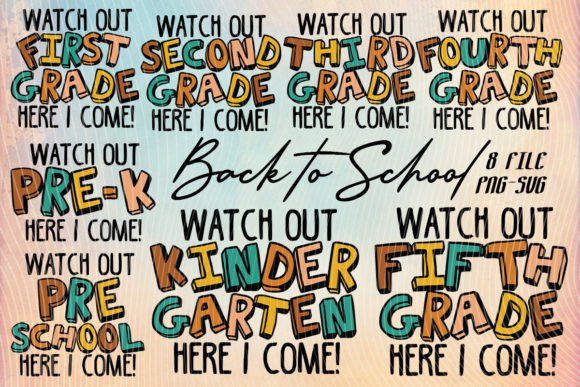 WATCH OUT
FIRST
GRADE
HERE I COME!
WATCH OUT
SECOND
GRADE
HERE I COME!
WATCH OUT
THIRD
GRADE
HERE I COME!
WATCH OUT
FOURTH
GRADE
HERE I COME!
WATCH OUT
PRE-K
HERE I COME!
Back to School
8 FILE
PNG-SVG
WATCH OUT
PRE
SCHOOL
HERE I COME!
WATCH OUT
KINDER
GARTEN
HERE I COME!
WATCH OUT
FIFTH
GRADE
HERE I COME!